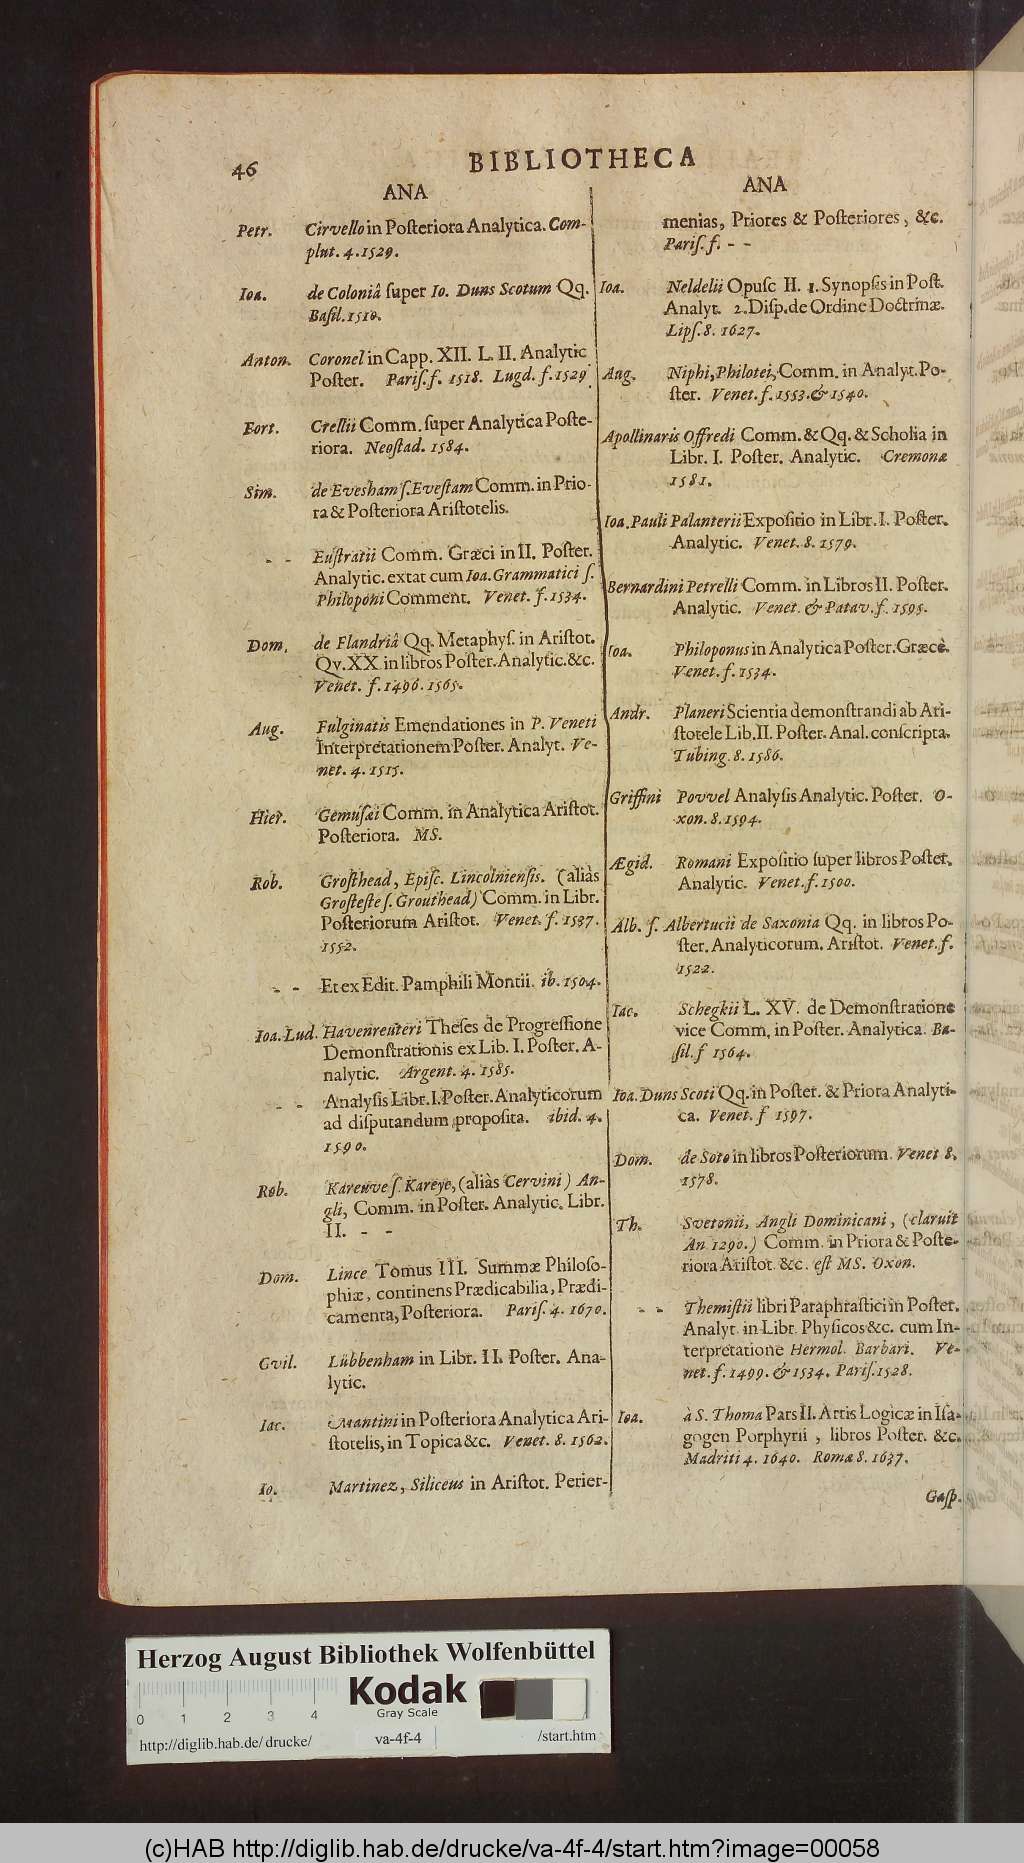 46
BIBLIOTHECA
ANA
Petr. Cirvello in Poſteriora Analytica. Com-
plut. 4. 1529.
Ioa. de Coloniâ ſuper Io. Duns Scotum Qq.
Baſil. 1510.
Anton. Coronel in Capp. XII. L. II. Analytic
Poſter. Pariſ. f. 1518. Lugd. f. 1529
Fort. Crellii Comm. ſuper Analytica Poſte-
riora. Neoſtad. 1584.
Sim. de Evesham ſ. Eveſtam Comm. in Prio-
ra & Poſteriora Ariſtotelis.
- - Euſtratii Comm. Græci in II. Poſter.
Analytic. extat cum Ioa. Grammatici ſ.
Philoponi Comment. Venet. f. 1534.
Dom. de Flandriâ Qq. Metaphyſ. in Ariſtot.
Qv. XX in libros Poſter. Analytic. &c.
Venet. f. 1496. 1565.
Aug. Fulginatis Emendationes in P. Veneti
Interpretationem Poſter. Analyt. Ve-
net. 4. 1515.
Hier. Gemuſæi Comm. in Analytica Ariſtot.
Poſteriora. MS.
Rob. Groſthead, Epiſc. Lincolnienſis. (aliàs
Groſteſte ſ. Grouthead) Comm. in Libr.
Poſteriorum Ariſtot. Venet. f. 1537.
1552.
- - Et ex Edit. Pamphili Montii. ib. 1504.
Ioa. Lud. Havenreuteri Theſes de Progreſſione
Demonſtrationis ex Lib. I. Poſter. A-
nalytic. Argent. 4. 1585.
- - Analyſis Libr. I. Poſter. Analyticorum
ad diſputandum propoſita. ibid. 4.
1590.
Rob. Kareuve ſ. Kareye, (aliàs Cervini) An-
gli, Comm. in Poſter. Analytic. Libr.
II. - -
Dom. Lince Tomus III. Summæ Philoſo-
phiæ, continens Prædicabilia, Prædi-
camenta, Poſteriora. Pariſ. 4. 1670.
Gvil. Lübbenham in Libr. II. Poſter. Ana-
lytic.
Iac. Mantini in Poſteriora Analytica Ari-
ſtotelis, in Topica &c. Venet. 8. 1562.
Io. Martinez, Siliceus in Ariſtot. Perier-
ANA
menias, Priores & Poſteriores, &c.
Pariſ. f. - -
Ioa. Neldelii Opuſc II. 1. Synopſes in Poſt.
Analyt. 2. Diſp. de Ordine Doctrinæ.
Lipſ. 8. 1627.
Aug. Niphi, Philotei, Comm. in Analyt. Po-
ſter. Venet. f. 1553. & 1540.
Apollinaris Offredi Comm. & Qq. & Scholia in
Libr. I. Poſter. Analytic. Cremonæ
1581.
Ioa. Pauli Palanterii Expoſitio in Libr. I. Poſter.
Analytic. Venet. 8. 1579.
Bernardini Petrelli Comm. in Libros II. Poſter.
Analytic. Venet. & Patav. f. 1595.
Ioa. Philoponus in Analytica Poſter. Græcè.
Venet. f. 1534.
Andr. Planeri Scientia demonſtrandi ab Ari-
ſtotele Lib. II. Poſter. Anal. conſcripta.
Tubing. 8. 1586.
Griffini Povvel Analyſis Analytic. Poſter. O-
xon. 8. 1594.
Ægid. Romani Expoſitio ſuper libros Poſter.
Analytic. Venet. f. 1500.
Alb. ſ. Albertucii de Saxonia Qq. in libros Po-
ſter. Analyticorum. Ariſtot. Venet. f.
1522.
Iac. Schegkii L. XV. de Demonſtratione
vice Comm, in Poſter. Analytica. Ba-
ſil. f 1564.
Ioa. Duns Scoti Qq. in Poſter. & Priora Analyti-
ca. Venet. f 1597.
Dom. de Soto in libros Poſteriorum. Venet 8.
1578.
Th. Svetonii, Angli Dominicani, (claruit
An 1290.) Comm. in Priora & Poſte-
riora Ariſtot. &c. eſt MS. Oxon.
- - Themiſtii libri Paraphraſtici in Poſter.
Analyt. in Libr. Phyſicos &c. cum In-
terpretatione Hermol. Barbari. Ve-
net. f. 1499. & 1534. Pariſ. 1528.
Ioa. à S. Thoma Pars II. Artis Logicæ in Iſa-
gogen Porphyrii, libros Poſter. &c.
Madriti 4. 1640. Romæ 8. 1637.
Gaſp.
Herzog August Bibliothek Wolfenbüttel
Kodak
Gray Scale
0 1 2 3 4
http://diglib.hab.de/drucke/ va-4f-4 /start.htm
(c)HAB http://diglib.hab.de/drucke/va-4f-4/start.htm?image=00058